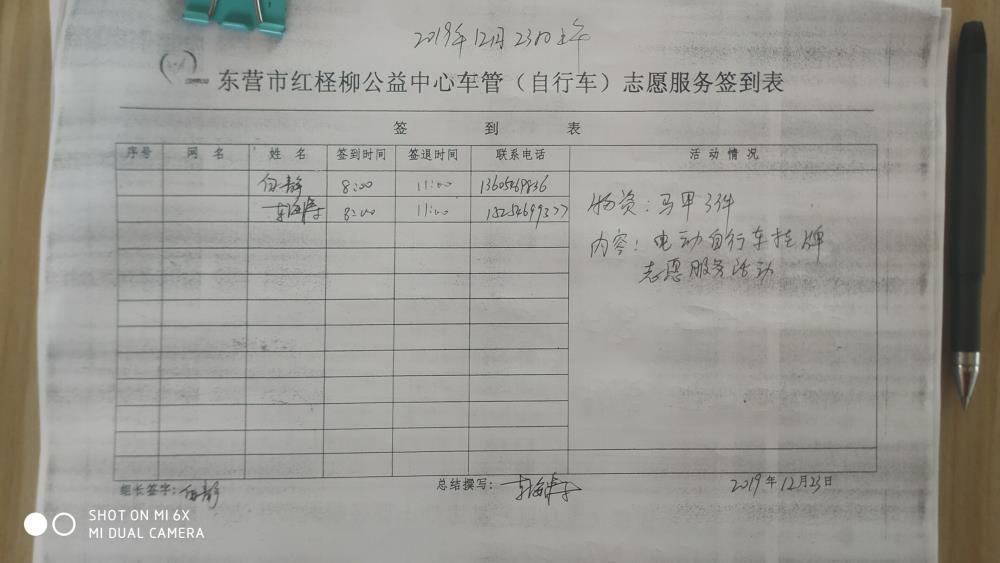 2019年12月23日上午
东营市红柽柳公益中心车管（自行车）志愿服务签到表
签 到 表
序号 网名 姓名 签到时间 签退时间 联系电话 活动情况
白静 8:00 11:00
8:00 11:00
物资：马甲3件
内容：电动自行车挂牌
志愿服务活动
组长签字：白静 总结撰写： 2019年12月23日
SHOT ON MI 6X
MI DUAL CAMERA